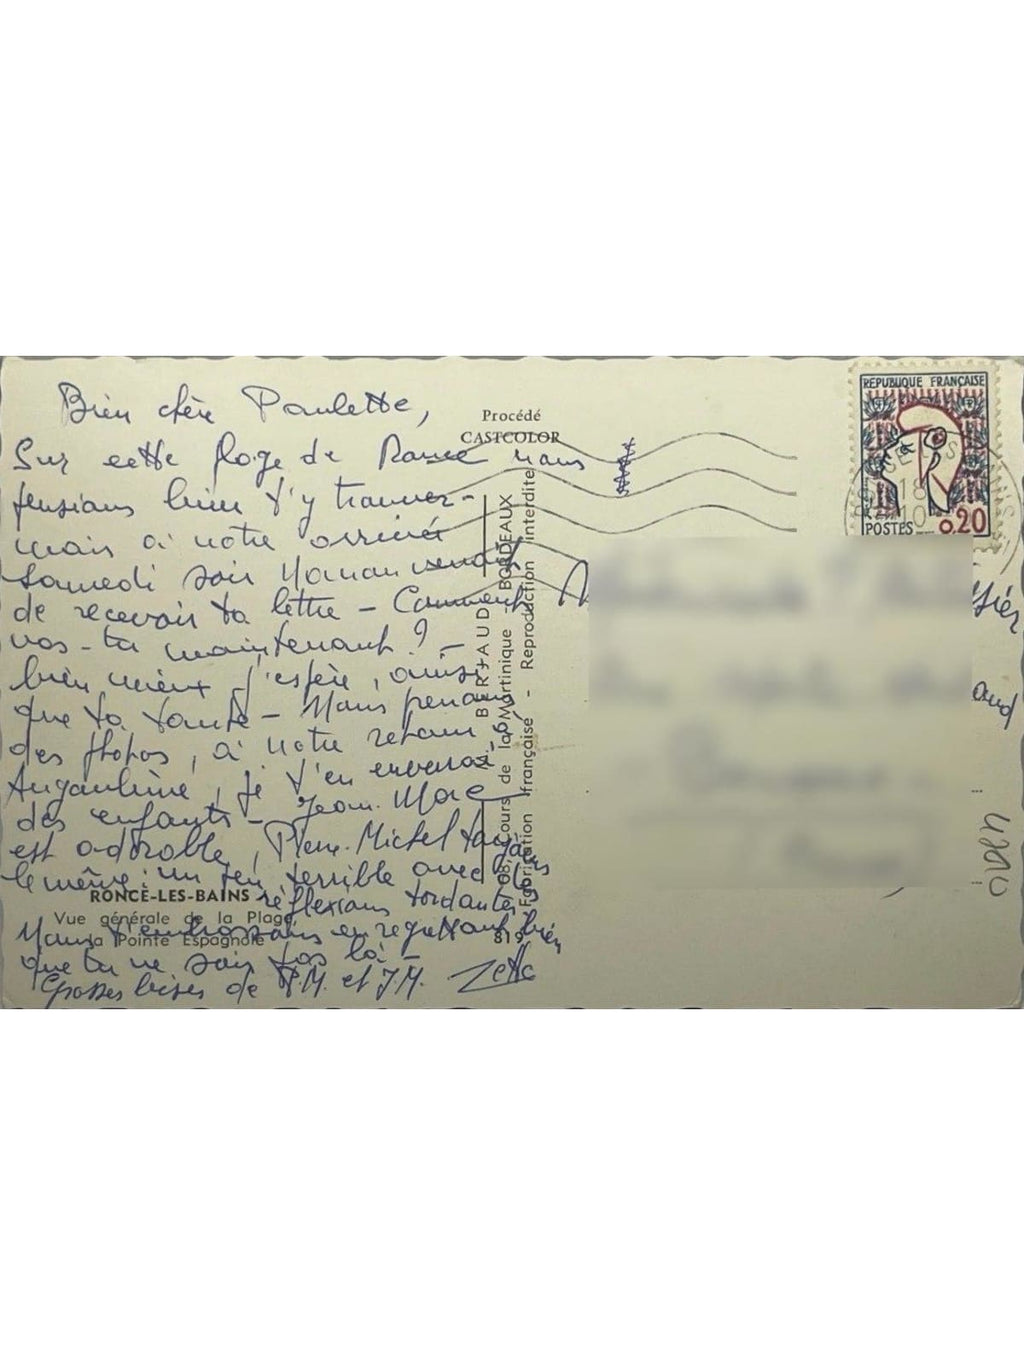 Bien chère Paulette,
Sur cette plage de Ronce nous
pensions bien t'y trouver -
mais à notre arrivée
Samedi soir Maman venait
de recevoir ta lettre - Comment
vas-tu maintenant ? -
bien mieux j'espère, ainsi
que ta tante - Nous prenons
des photos, à notre retour à
Angoulême, je t'en enverrai
des enfants - Jean-Marc
est adorable, Pierre-Michel toujours
le même : un peu terrible avec des
réflexions tordantes
Nous t'embrassons en regrettant bien
que tu ne sois pas là -
Grosses bises de P.M. et J.M. Zette
RONCE-LES-BAINS
Vue générale de la Plage
la Pointe Espagnole
Procédé
CASTCOLOR
BERJAUD
Cours de la Martinique - BORDEAUX
Fabrication française - Reproduction interdite
819
RÉPUBLIQUE FRANÇAISE
POSTES 0,20
18